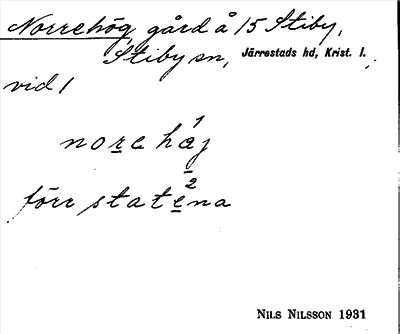 Norrehög, gård å 15 Stiby,
Stiby sn, Järrestads hd, Krist. l.
vid 1
nore haj 1
förr statena 2
NILS NILSSON 1931